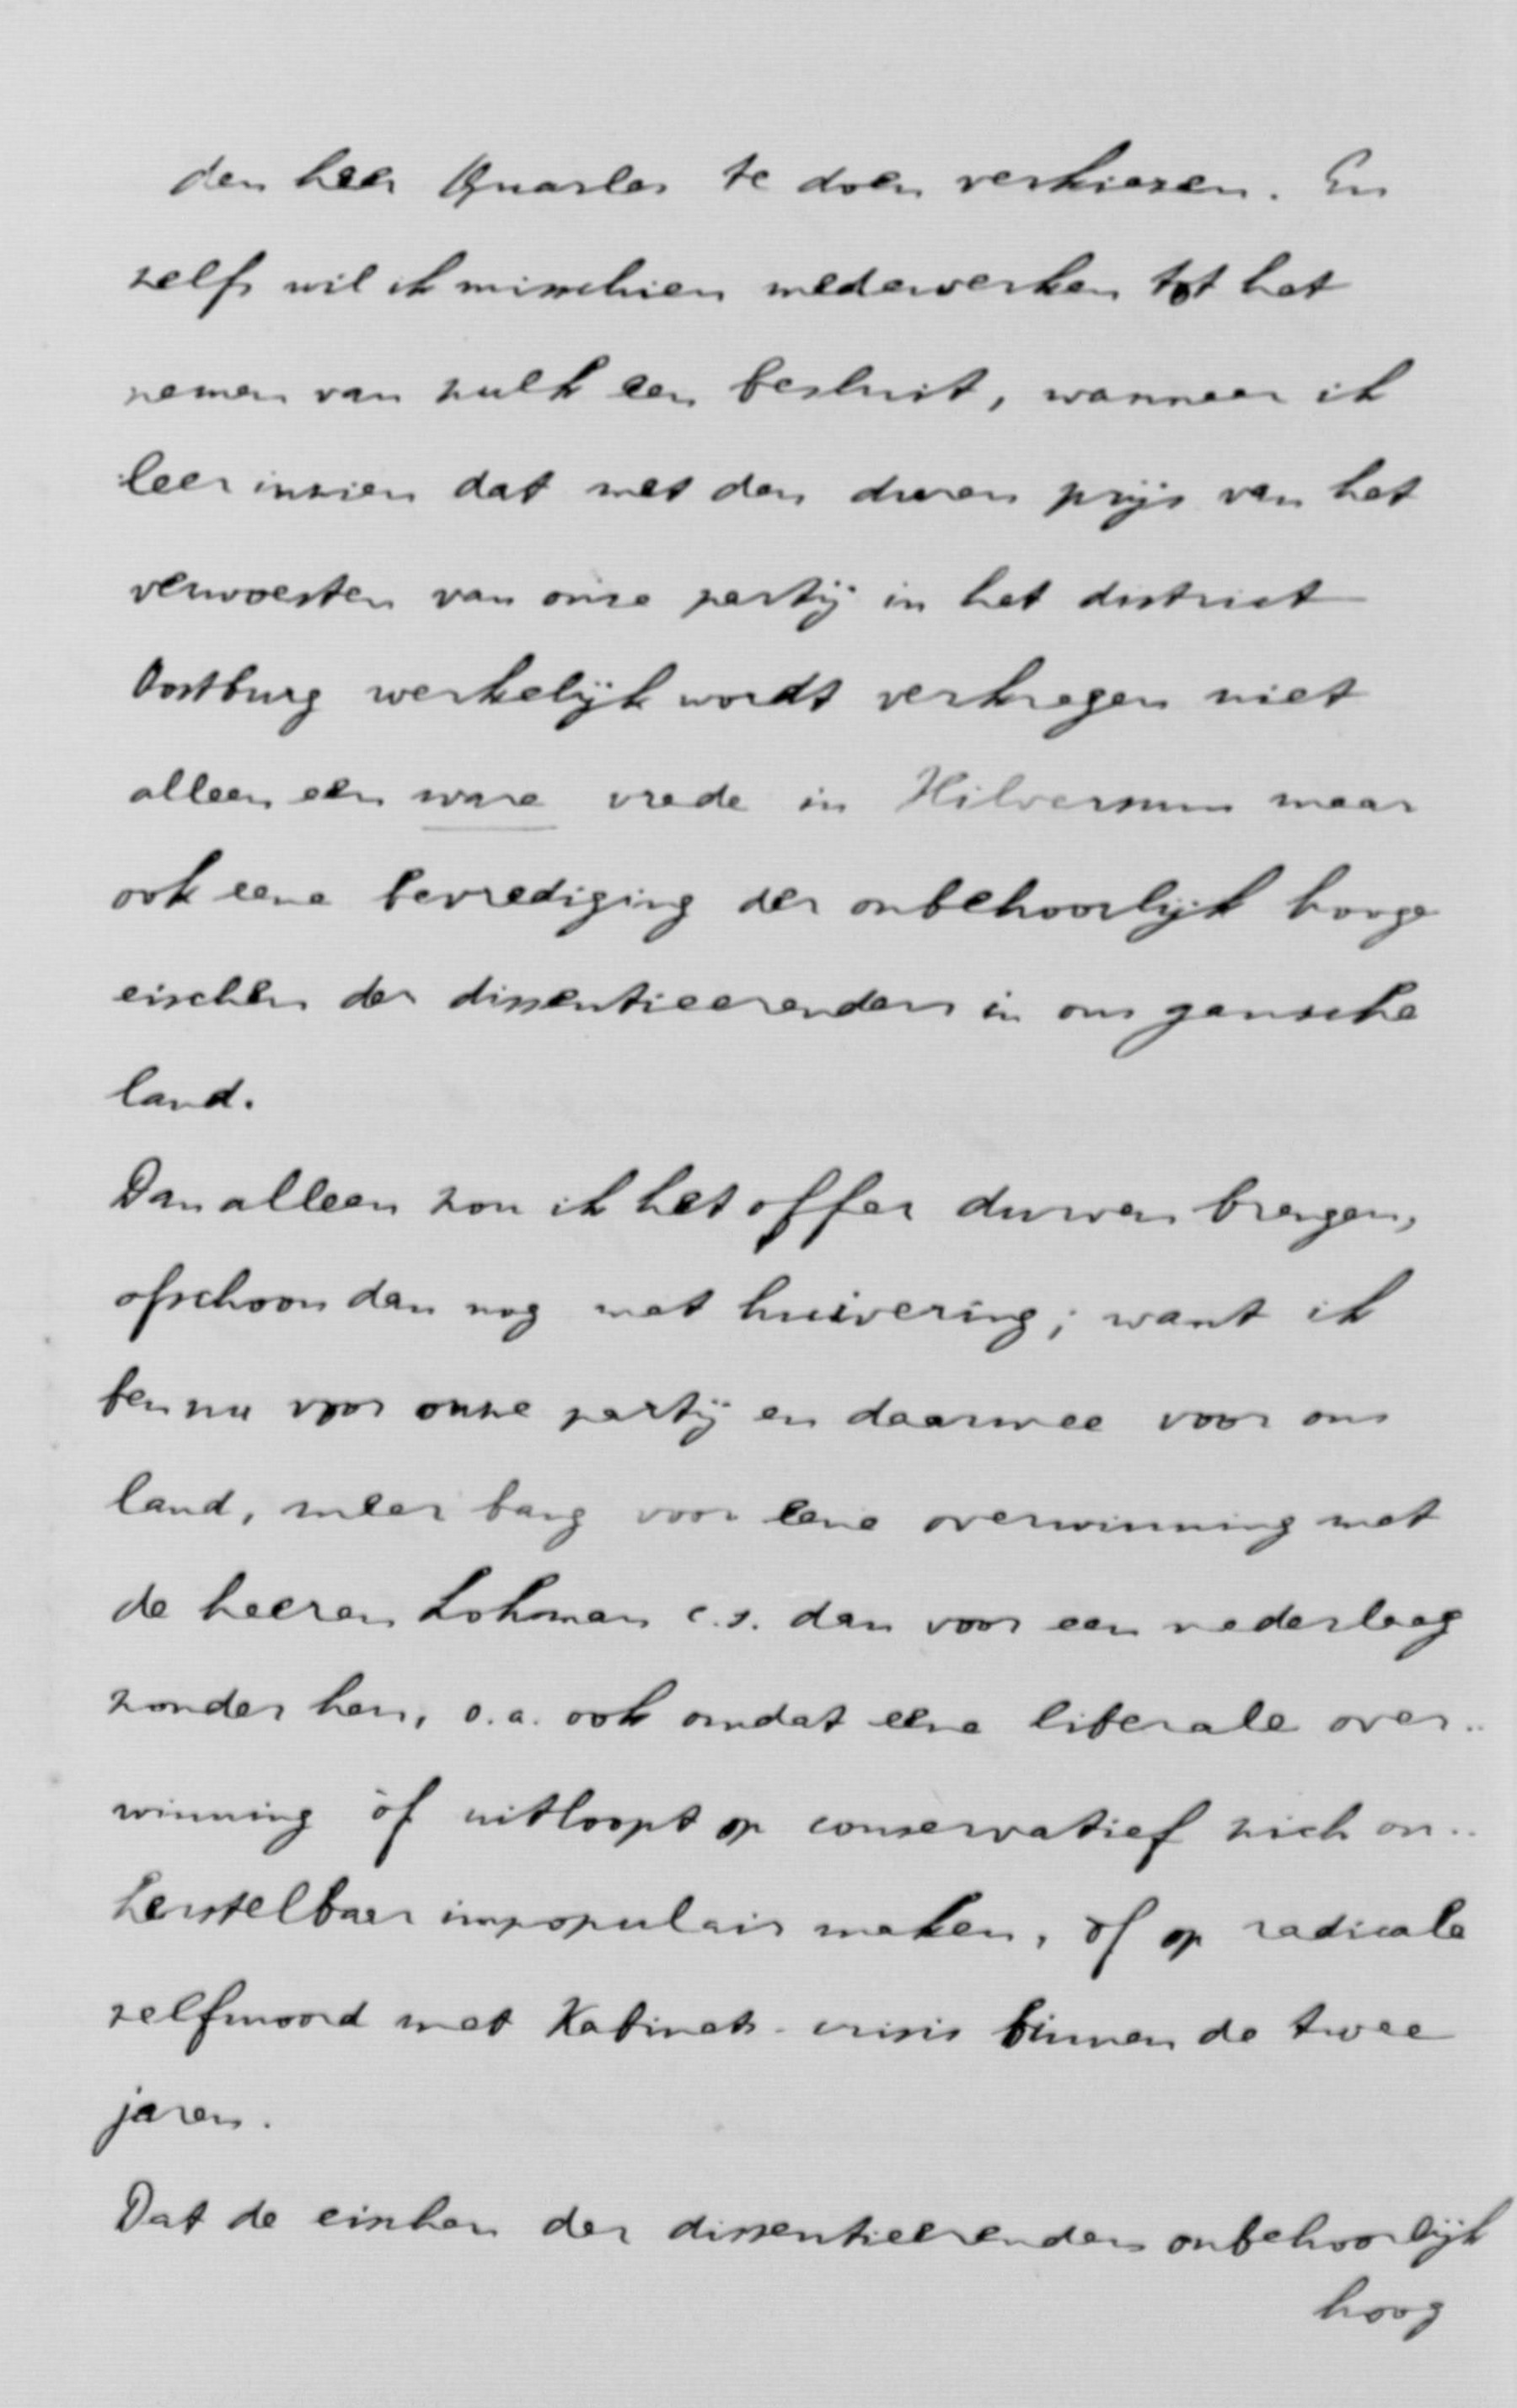 den heer Quarles te doen verkiezen. En
zelfs wil ik misschien medewerken tot het
nemen van zulk een besluit, wanneer ik
leer inzien dat met den duren prijs van het
verwoesten van onze partij in het district
Oostburg werkelijk wordt verkregen niet
alleen een ware vrede in Hilversum maar
ook eene bevrediging der onbehoorlijk hooge
eischen der dissentieerenden in ons gansche
land.
Dan alleen zou ik het offer durven brengen,
ofschoon dan nog met huivering; want ik
ben nu voor onze partij en daarmee voor ons
land, meer bang voor eene overwinning met
de heeren Lohman c.s. dan voor een nederlaag
zonder hen, o.a. ook omdat eene liberale over..
winning òf uitloopt op conservatief zich on..
herstelbaar impopulair maken, òf op radicale
zelfmoord met Kabinets-crisis binnen de twee
jaren.
Dat de eischen der dissentieerenden onbehoorlijk
hoog